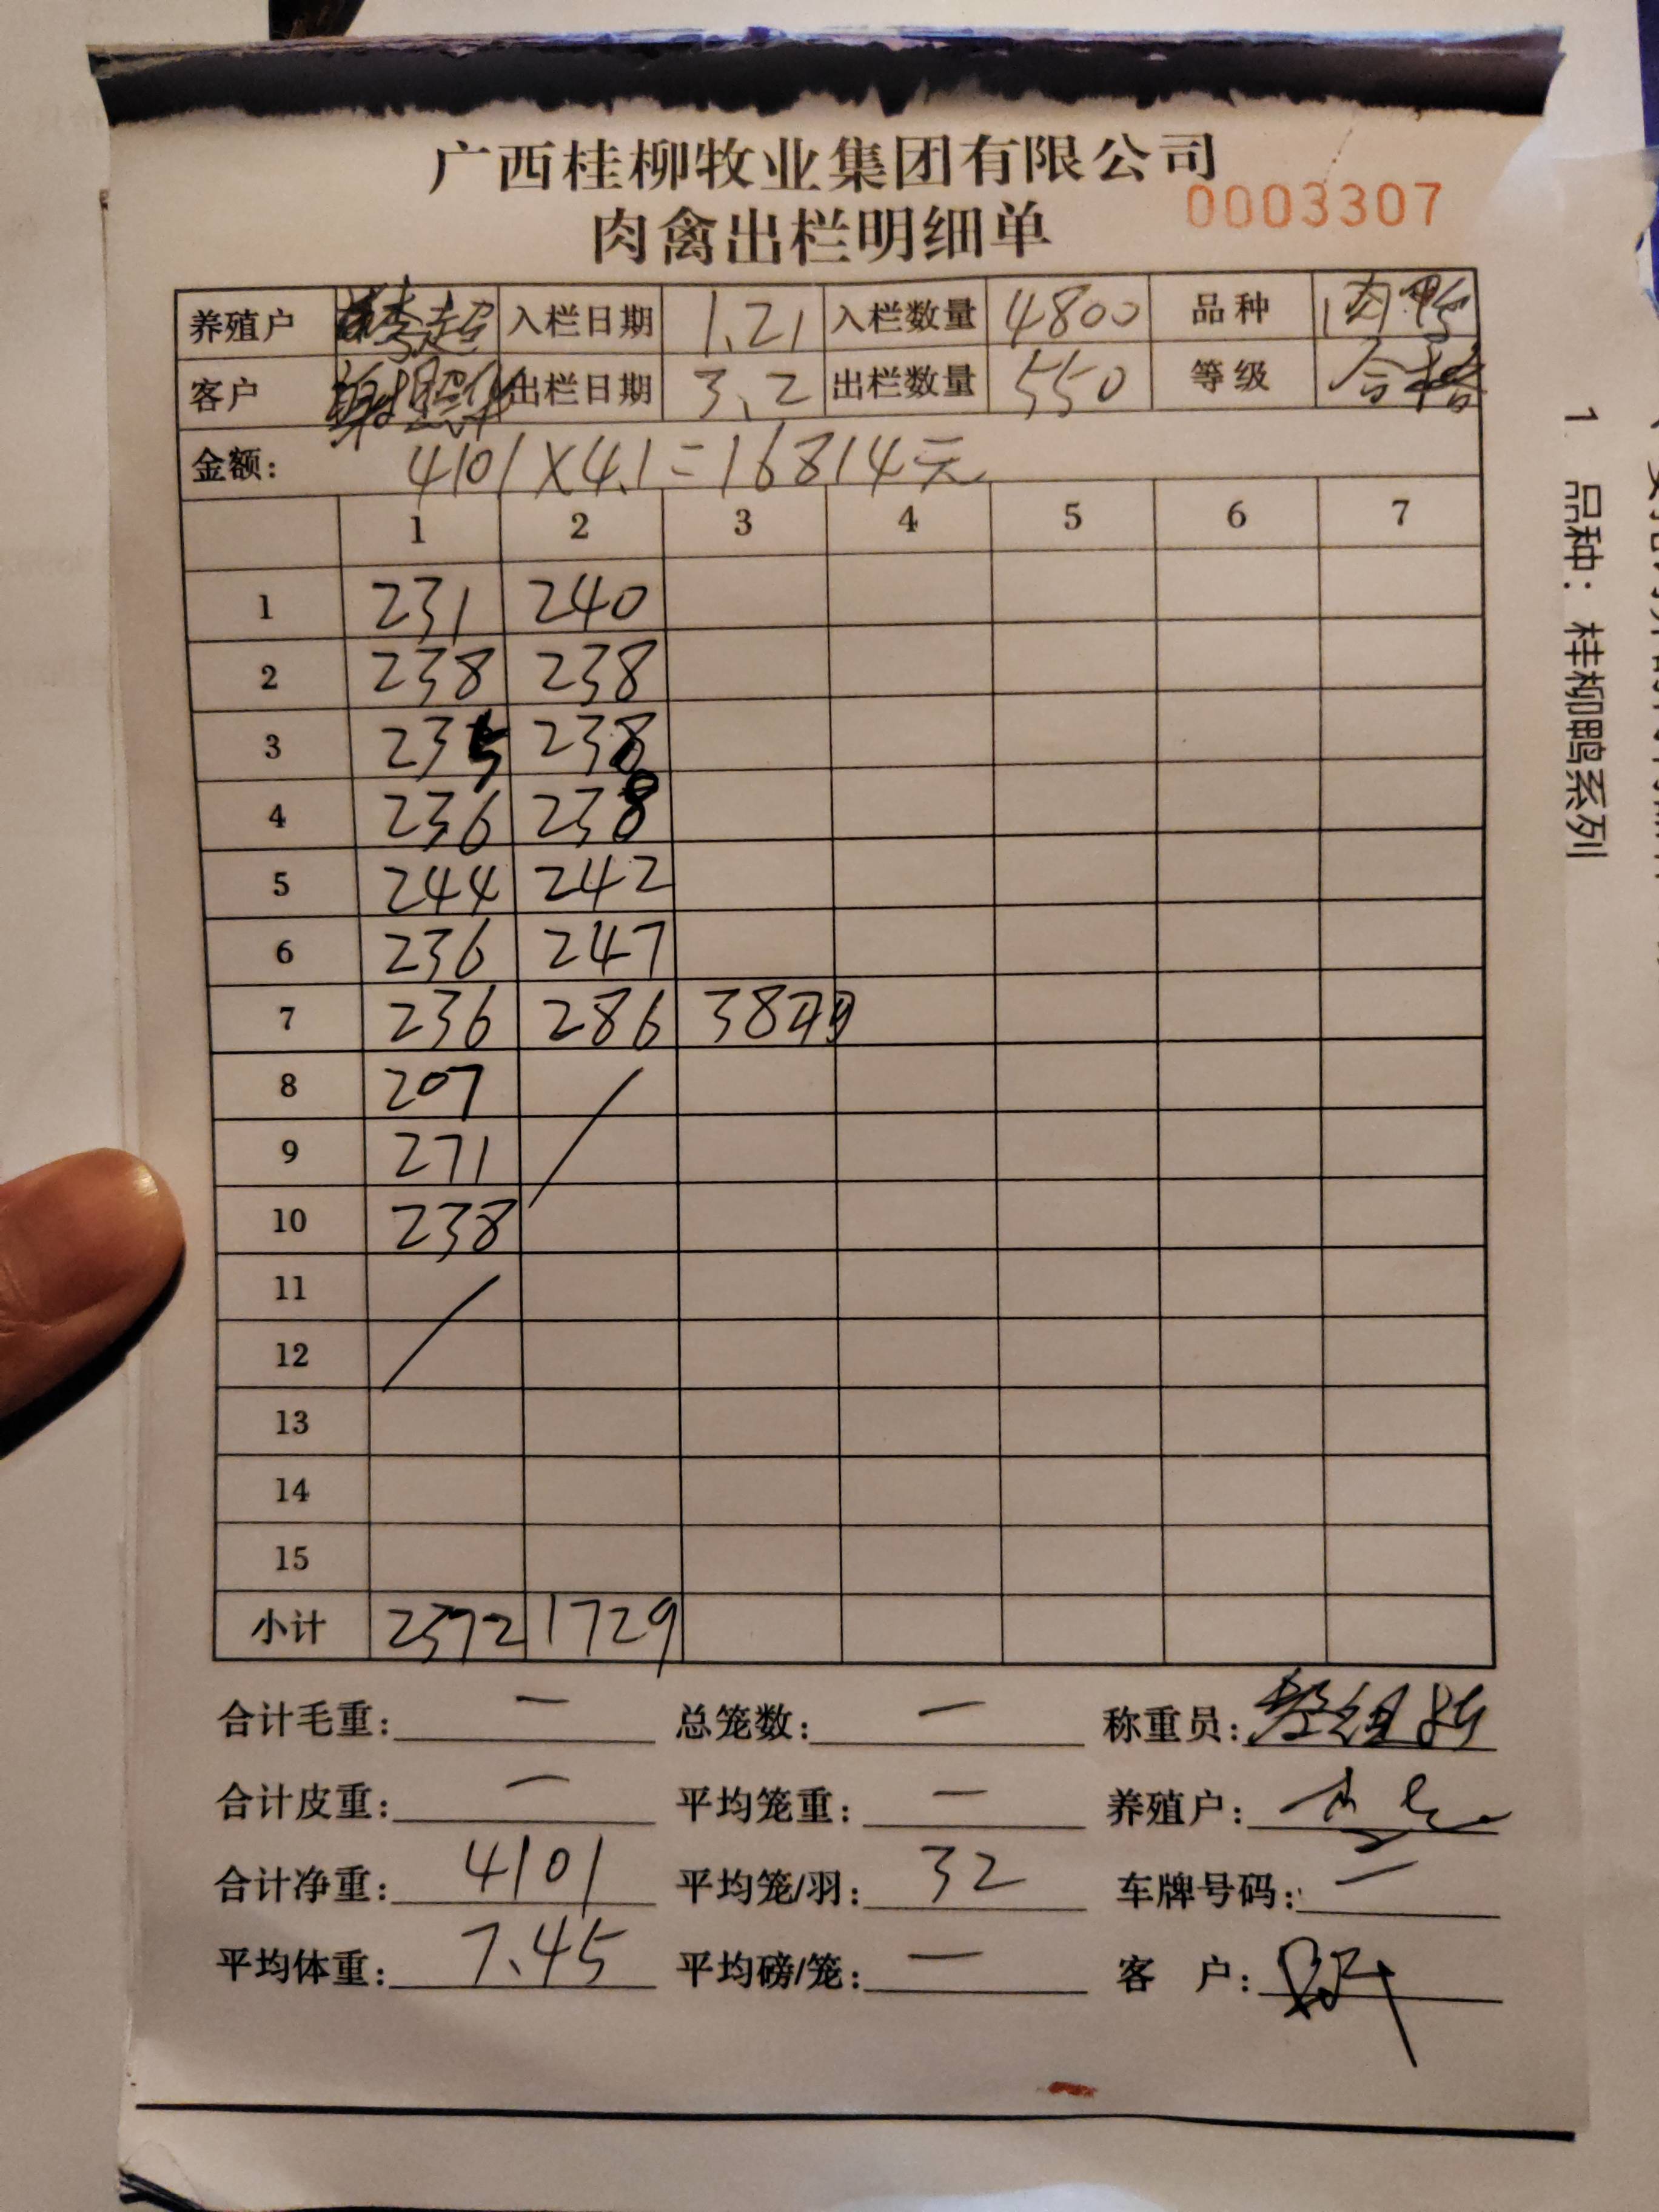 广西桂柳牧业集团有限公司
肉禽出栏明细单 0003307
养殖户 李超 入栏日期 1.21 入栏数量 4800 品种 肉鸭
客户 出栏日期 3.2 出栏数量 550 等级 合格
金额: 4101×4.1=16814元
1 2 3 4 5 6 7
1 231 240
2 238 238
3 235 238
4 236 238
5 244 242
6 236 247
7 236 286 38羽
8 207
9 271
10 238
11
12
13
14
15
小计 2372 1729
合计毛重: — 总笼数: — 称重员:
合计皮重: — 平均笼重: — 养殖户:
合计净重: 4101 平均笼/羽: 32 车牌号码: —
平均体重: 7.45 平均磅/笼: — 客 户:
1 品种：桂柳鸭系列